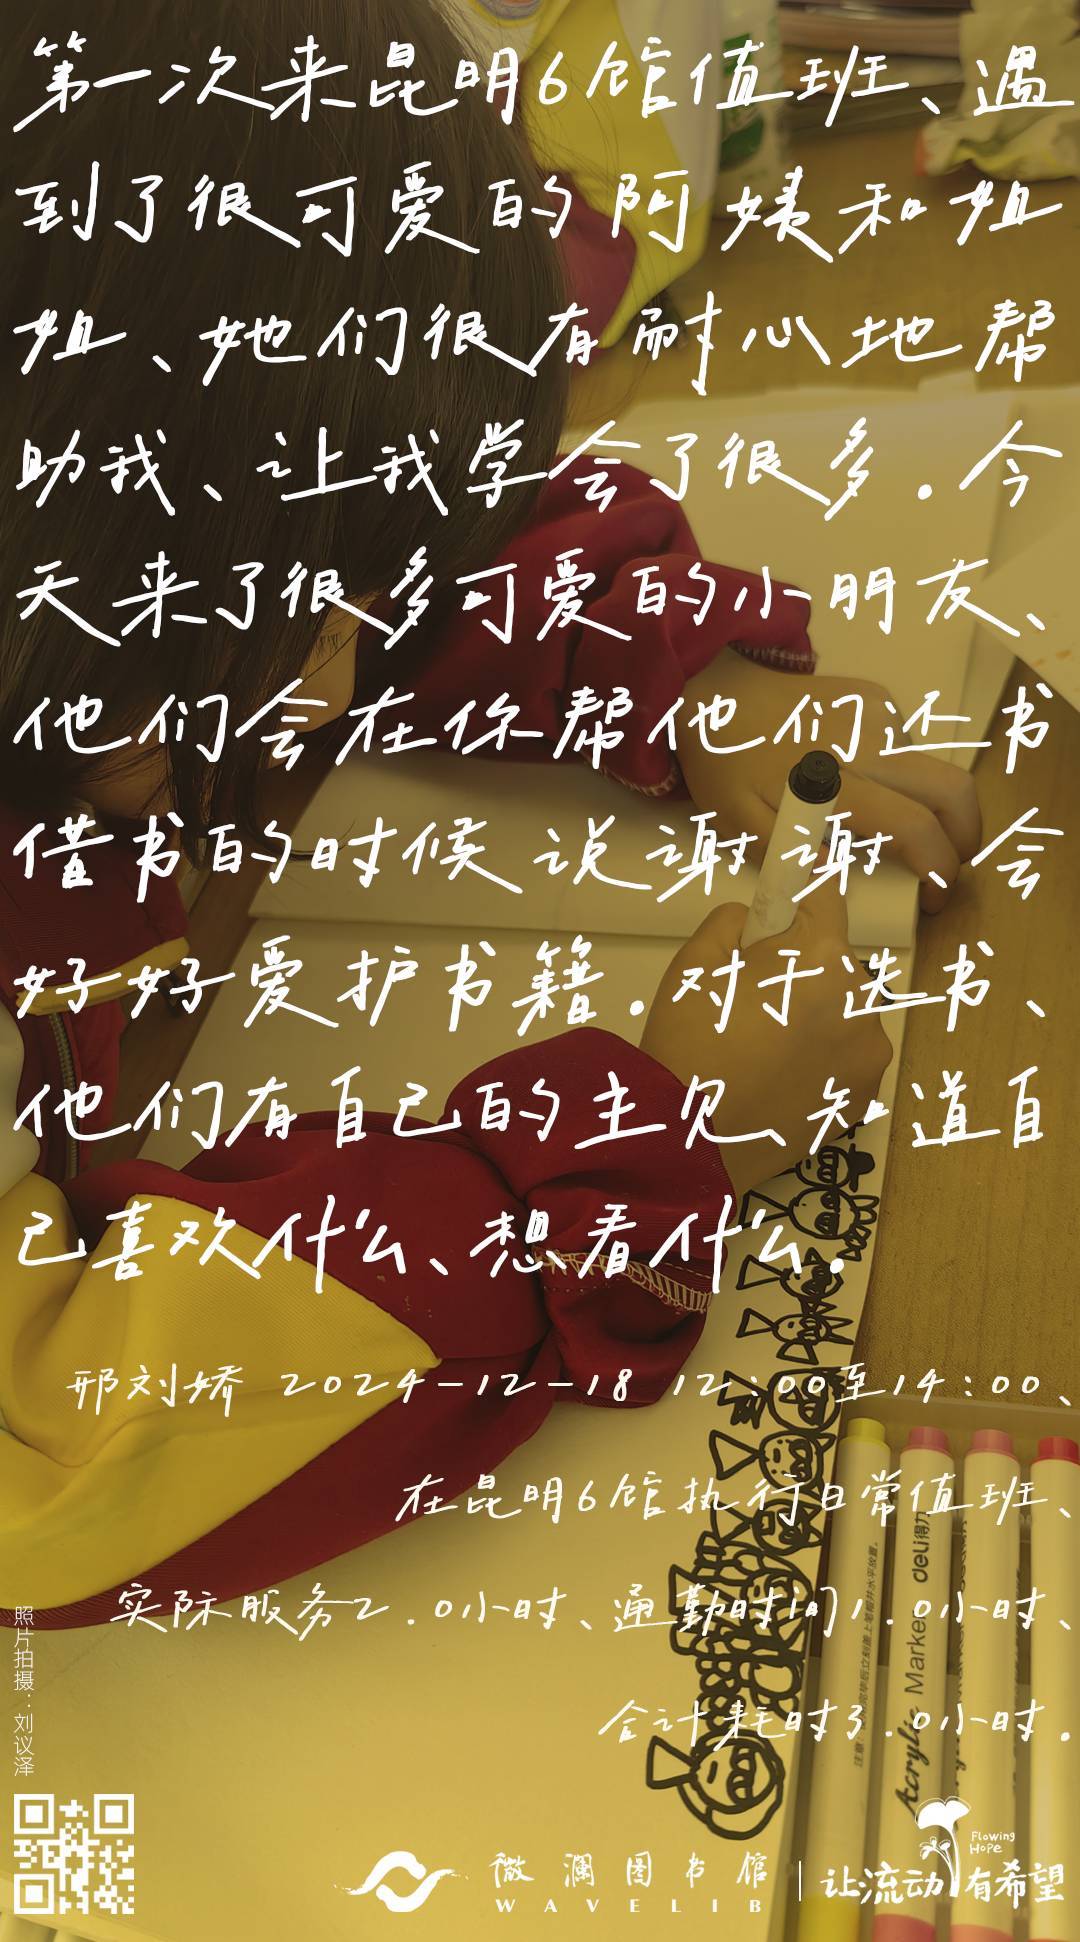 第一次来昆明6馆值班、遇
到了很可爱的阿姨和姐
姐、她们很有耐心地帮
助我、让我学会了很多.今
天来了很多可爱的小朋友、
他们会在你帮他们还书
借书的时候说谢谢、会
好好爱护书籍.对于选书、
他们有自己的主见、知道自
己喜欢什么、想看什么.
邢刘娇 2024-12-18 12:00至14:00、
在昆明6馆执行日常值班、
实际服务2.0小时、通勤时间1.0小时、
合计耗时3.0小时.
照片拍摄：刘议泽
deli得力
Acrylic Marker
微澜图书馆
WAVELIB
Flowing
Hope
让流动有希望